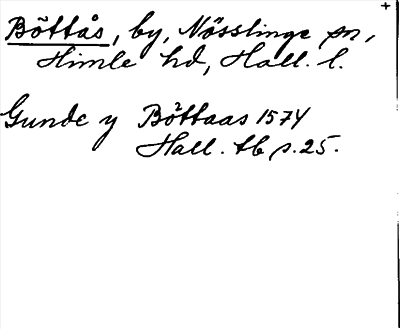 Böttås, by, Nösslinge sn,
Himle hd, Hall. l.
Gunde y Böttaas 1574
Hall. tb s. 25.